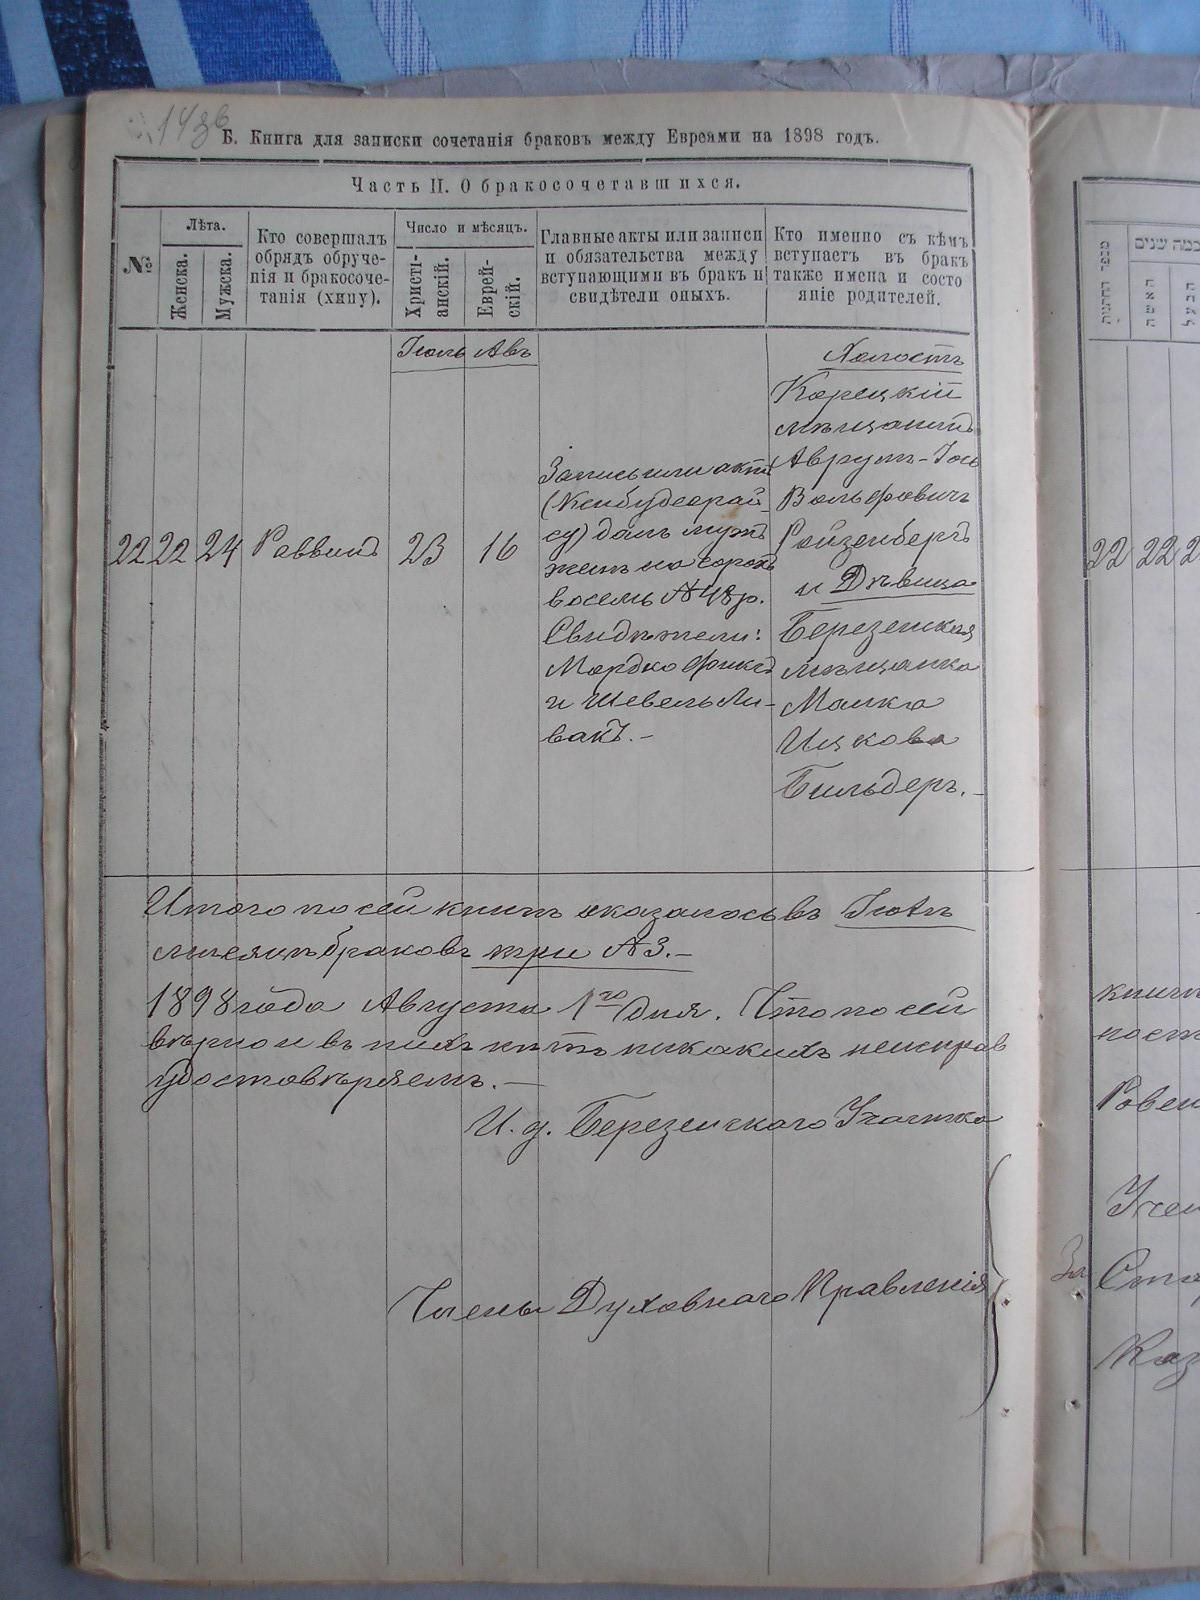 143б
Б. Книга для записки сочетанія браковъ между Евреями на 1898 годъ.
Часть II. О бракосочетавшихся.
№
Лѣта.
Женска.
Мужска.
Кто совершалъ
обрядъ обруче-
нія и бракосоче-
танія (хипу).
Число и мѣсяцъ.
Христі-
анскій.
Еврей-
скій.
Главные акты или записи
и обязательства между
вступающими въ бракъ и
свидѣтели оныхъ.
Кто именно съ кѣмъ
вступаетъ въ бракъ
также имена и состо
яніе родителей.
Іюль Авъ
22 22 24 Раввинъ 23 16
Запись или актъ
восемь №48р.
Свидѣтели:
Мордко Фиксъ
и Шевель Ли-
вакъ.-
Холостъ
Корецкій
мѣщанинъ
Аврумъ-Іось
Вольфовичъ
Ройзенбергъ
и Дѣвица
Березенская
мѣщанка
Малка
Ицкова
Бильдеръ.-
Итого по сей книгѣ оказалось въ Іюлѣ
мѣсяцѣ браковъ три №3.-
1898 года Августа 1го дня. Что по сей
вѣрно и въ нихъ нѣтъ никакихъ неисправ
удостовѣряемъ.-
И. д. Березенскаго Участка
Члены Духовнаго Правленія
22 22 2
книг
ност
Ровен
Учен
За Ста
Каз